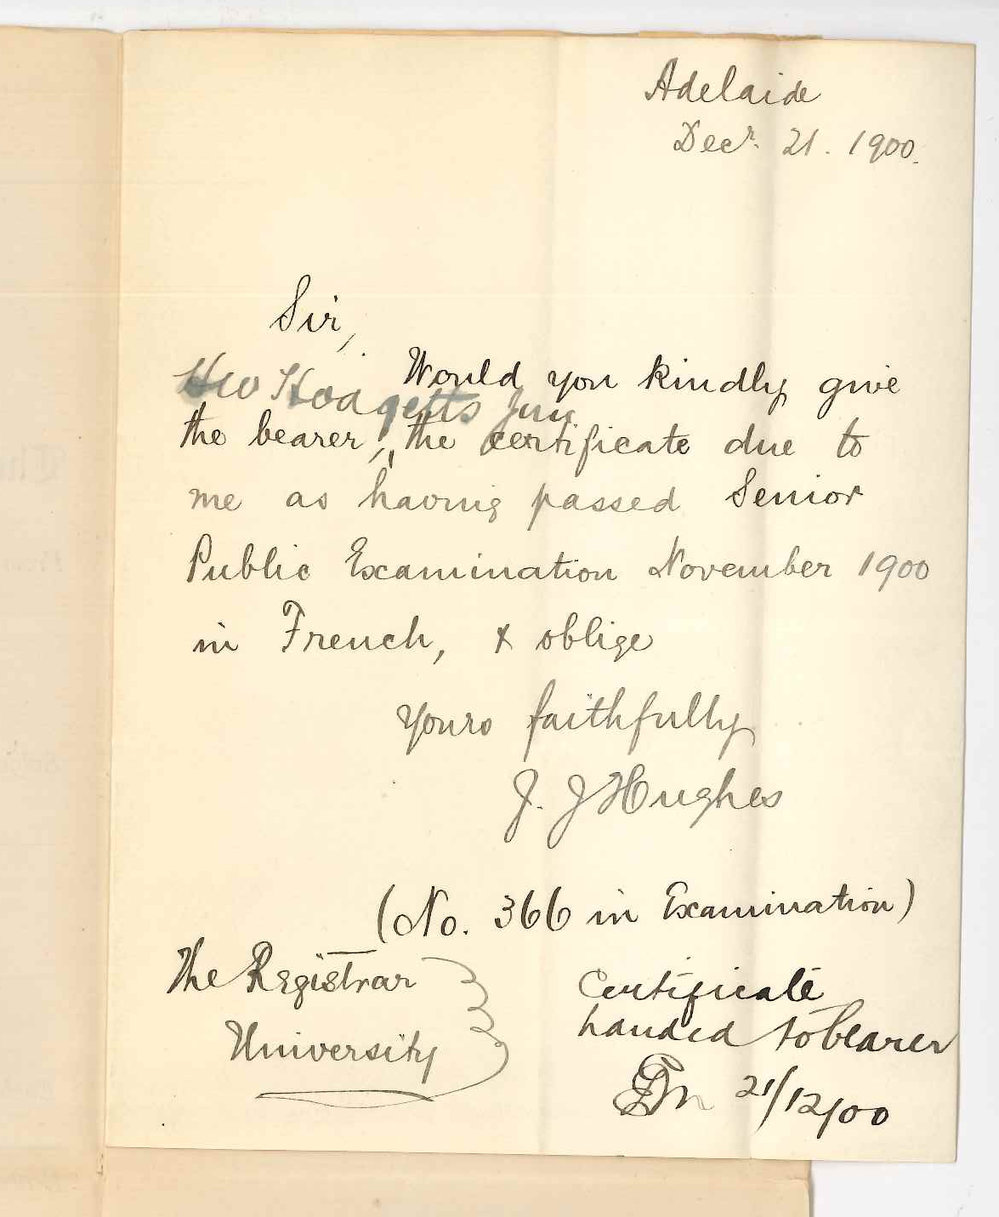 Adelaide
Decr. 21. 1900.
Sir,
Would you kindly give
Hodgetts Jun
the bearer, the certificate due to
me as having passed Senior
Public Examination November 1900
in French, & oblige
Yours faithfully
J. J Hughes
(No. 366 in Examination)
The Registrar
University
Certificate
handed to bearer
21/12/00